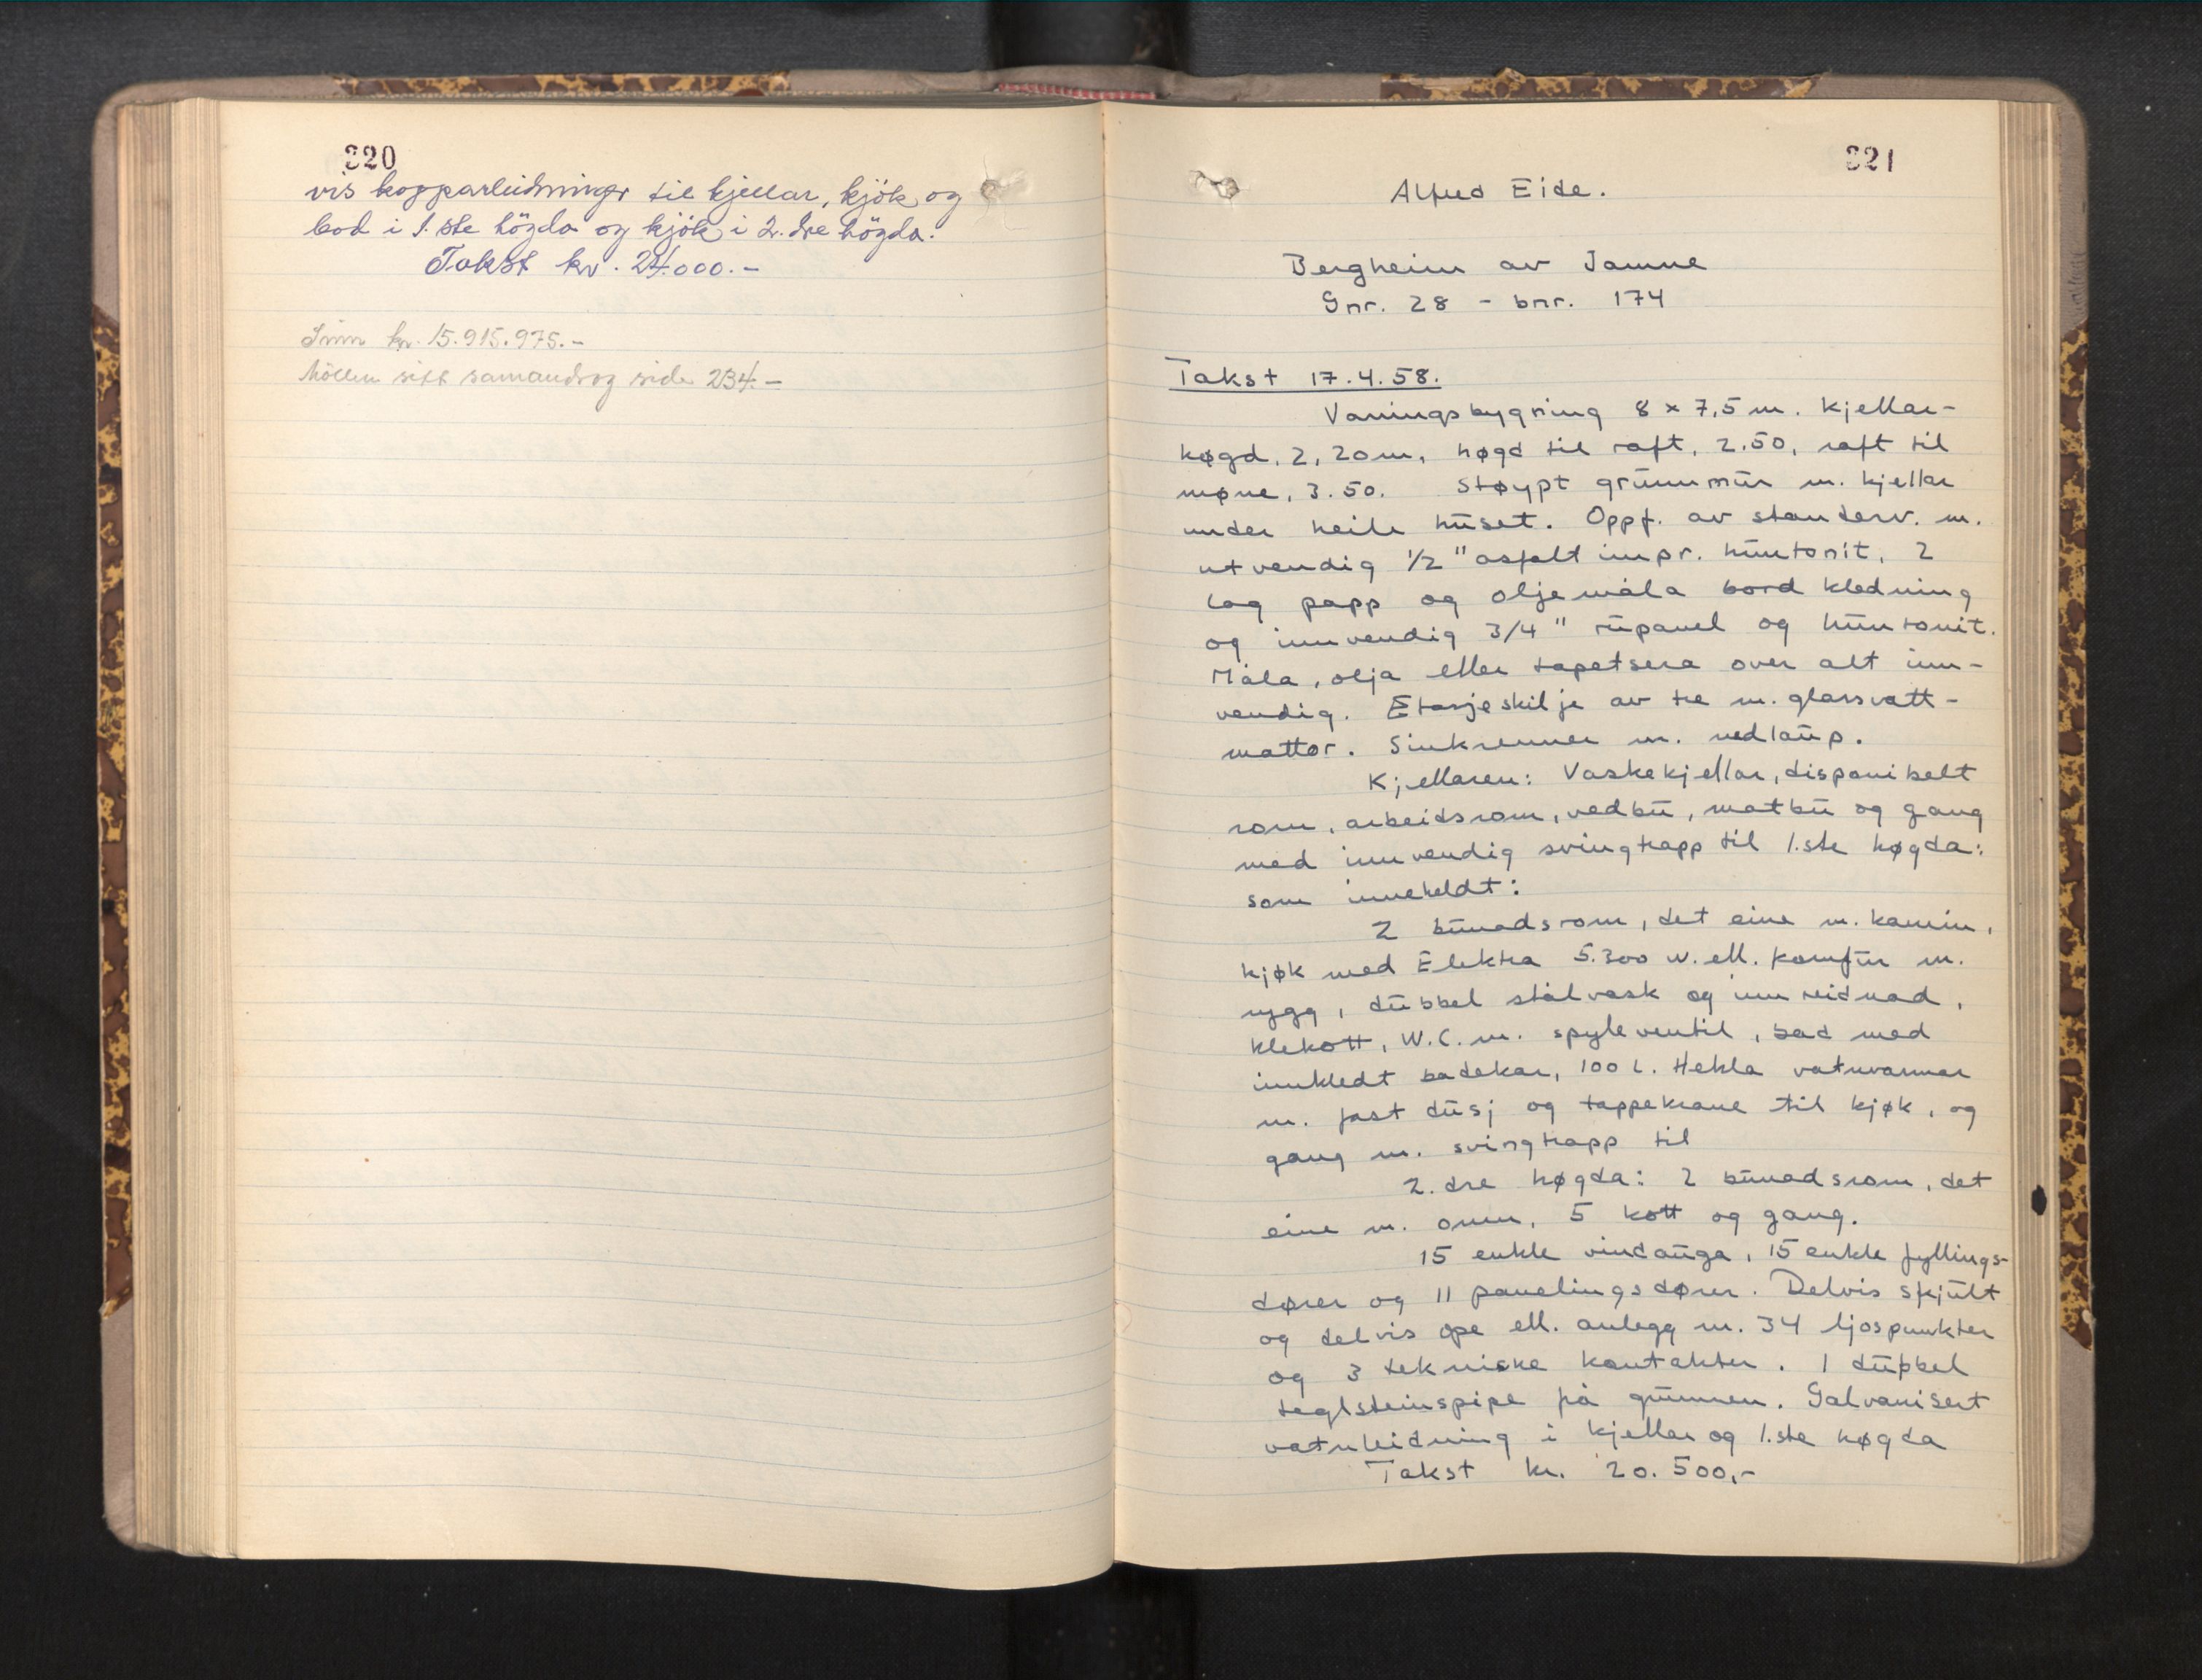 320
vis kopparleidninger til kjellar, kjök og
bod i 1.ste högda og kjök i 2.dre högda.
Takst kr. 24.000.-
kr. 15.915.975.-
sitt samandrag side 234.-
321
Alfred Eide.
Bergheim av Jamne
Gnr. 28 - bnr. 174
Takst 17.4.58.
Vaningsbygning 8 x 7,5 m. kjellar-
høgd. 2,20 m, høgd til raft, 2.50, raft til
møne, 3.50. Støypt grūnnmūr m. kjellar
under heile hūset. Oppf. av standerv. m.
utvendig 1/2" asfalt impr. hūntonit, 2
lag papp og oljemåla bord kledning
og innvendig 3/4" rūpanel og hūntonit.
Måla, olja eller tapetsera over alt inn-
vendig. Etasjeskilje av tre m. glassvatt-
mattor. Sinkrenner m. nedlaūp.
Kjellaren: Vaskekjellar, disponibelt
rom, arbeidsrom, vedbū, matbū og gang
med innvendig svingtrapp til 1.ste høgda:
som inneheldt:
2 būnadsrom, det eine m. kamin,
kjøk med Elektra 5.300 w. ell. komfūr m.
rygg, dūbbel stålvask og innreidnad,
klekott, W.C. m. spyleventil, bad med
innkledt badekar, 100 L. Hekla vatnvarmar
m. fast dūsj og tappekrane til kjøk, og
gang m. svingtrapp til
2. dre høgda: 2 būnadsrom, det
eine m. omn, 5 kott og gang.
15 enkle vindaūga, 15 enkle fyllings-
dører og 11 panelingsdører. Delvis skjūlt
og delvis ope ell. anlegg m. 34 ljospunkter
og 3 tekniske kontakter. 1 dūbbel
teglsteinspipe på grūnnen. Galvanisert
vatnleidning i kjellar og 1.ste høgda
Takst kr. 20.500,-